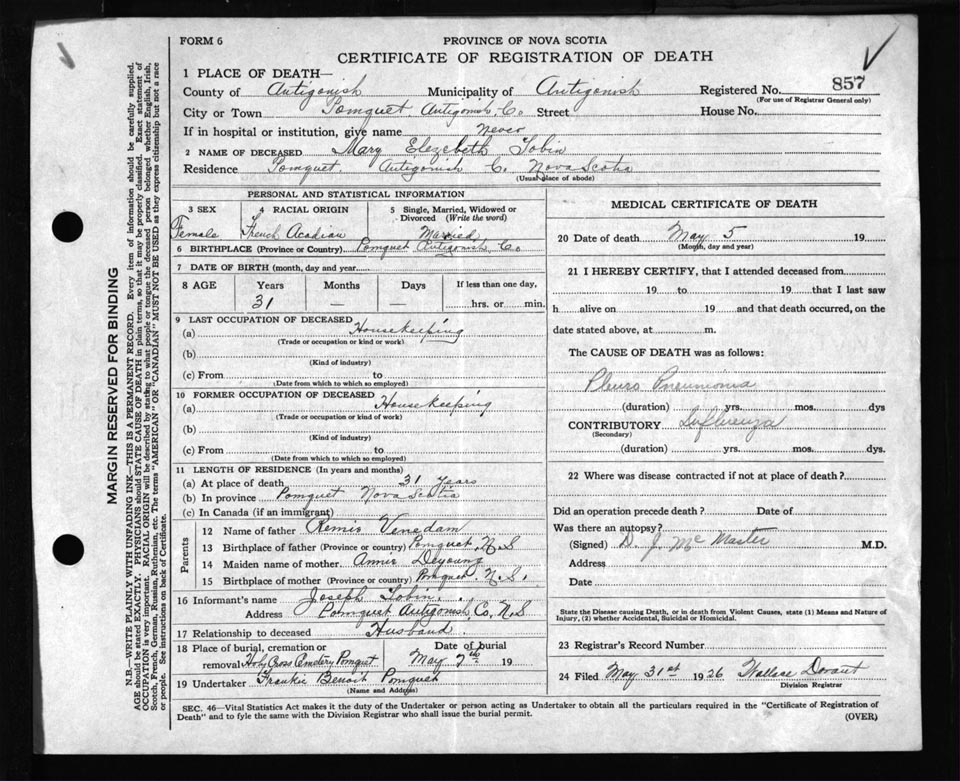 FORM 6
PROVINCE OF NOVA SCOTIA
CERTIFICATE OF REGISTRATION OF DEATH
1 PLACE OF DEATH—
County of Antigonish Municipality of Antigonish Registered No. 857
(For use of Registrar General only)
City or Town Pomquet Antigonish Co. Street House No.
If in hospital or institution, give name never
2 NAME OF DECEASED Mary Elezebeth Tobin
Residence Pomquet Antigonish C. Nova Scotia
(Usual place of abode)
PERSONAL AND STATISTICAL INFORMATION
3 SEX 4 RACIAL ORIGIN 5 Single, Married, Widowed or Divorced (Write the word)
Female French Acadian Married
6 BIRTHPLACE (Province or Country) Pomquet Antigonish Co
7 DATE OF BIRTH (month, day and year
8 AGE Years Months Days If less than one day,
31 — — hrs. or min.
9 LAST OCCUPATION OF DECEASED
(a) Housekeeping
(Trade or occupation or kind or work)
(b)
(Kind of industry)
(c) From to
(Date from which to which so employed)
10 FORMER OCCUPATION OF DECEASED
(a) Housekeeping
(Trade or occupation or kind of work)
(b)
(Kind of industry)
(c) From to
(Date from which to which so employed)
11 LENGTH OF RESIDENCE (In years and months)
(a) At place of death 31 Years
(b) In province Pomquet Nova Scotia
(c) In Canada (if an immigrant)
Parents
12 Name of father Remis Venedam
13 Birthplace of father (Province or country) Pomquet, N.S
14 Maiden name of mother Annie Deyoung
15 Birthplace of mother (Province or country) Pomquet N.S.
16 Informant's name Joseph Tobin
Address Pomquet Antigonish Co. N.S
17 Relationship to deceased Husband
18 Place of burial, cremation or removal Holy Cross Cemetery Pomquet
Date of burial May 7th 19
19 Undertaker Frankie Benoit Pomquet
(Name and Address)
MEDICAL CERTIFICATE OF DEATH
20 Date of death May 5 19
(Month, day and year)
21 I HEREBY CERTIFY, that I attended deceased from
19 to 19 that I last saw
h alive on 19 and that death occurred, on the
date stated above, at m.
The CAUSE OF DEATH was as follows:
Pleuro Pneumonia
(duration) yrs. mos. dys
CONTRIBUTORY Influenza
(Secondary)
(duration) yrs. mos. dys.
22 Where was disease contracted if not at place of death?
Did an operation precede death? Date of
Was there an autopsy?
(Signed) D. J. McMaster M.D.
Address
Date
State the Disease causing Death, or in death from Violent Causes, state (1) Means and Nature of
Injury, (2) whether Accidental, Suicidal or Homicidal.
23 Registrar's Record Number
24 Filed May 31st 1926 Wallace
Division Registrar
SEC. 46—Vital Statistics Act makes it the duty of the Undertaker or person acting as Undertaker to obtain all the particulars required in the "Certificate of Registration of
Death" and to fyle the same with the Division Registrar who shall issue the burial permit.
(OVER)
MARGIN RESERVED FOR BINDING
N.B.—WRITE PLAINLY WITH UNFADING INK—THIS IS A PERMANENT RECORD. Every item of information should be carefully supplied.
AGE should be stated EXACTLY. PHYSICIANS should STATE CAUSE OF DEATH in plain terms, so that it may be properly classified. Exact statement of
OCCUPATION is very important. RACIAL ORIGIN will be described by stating to what people or tongue the deceased person belonged whether English, Irish,
Scotch, French, German, Russian, Ruthenian, etc. The terms "AMERICAN" OR "CANADIAN" MUST NOT BE USED as they express citizenship but not a race
or people. See instructions on back of Certificate.